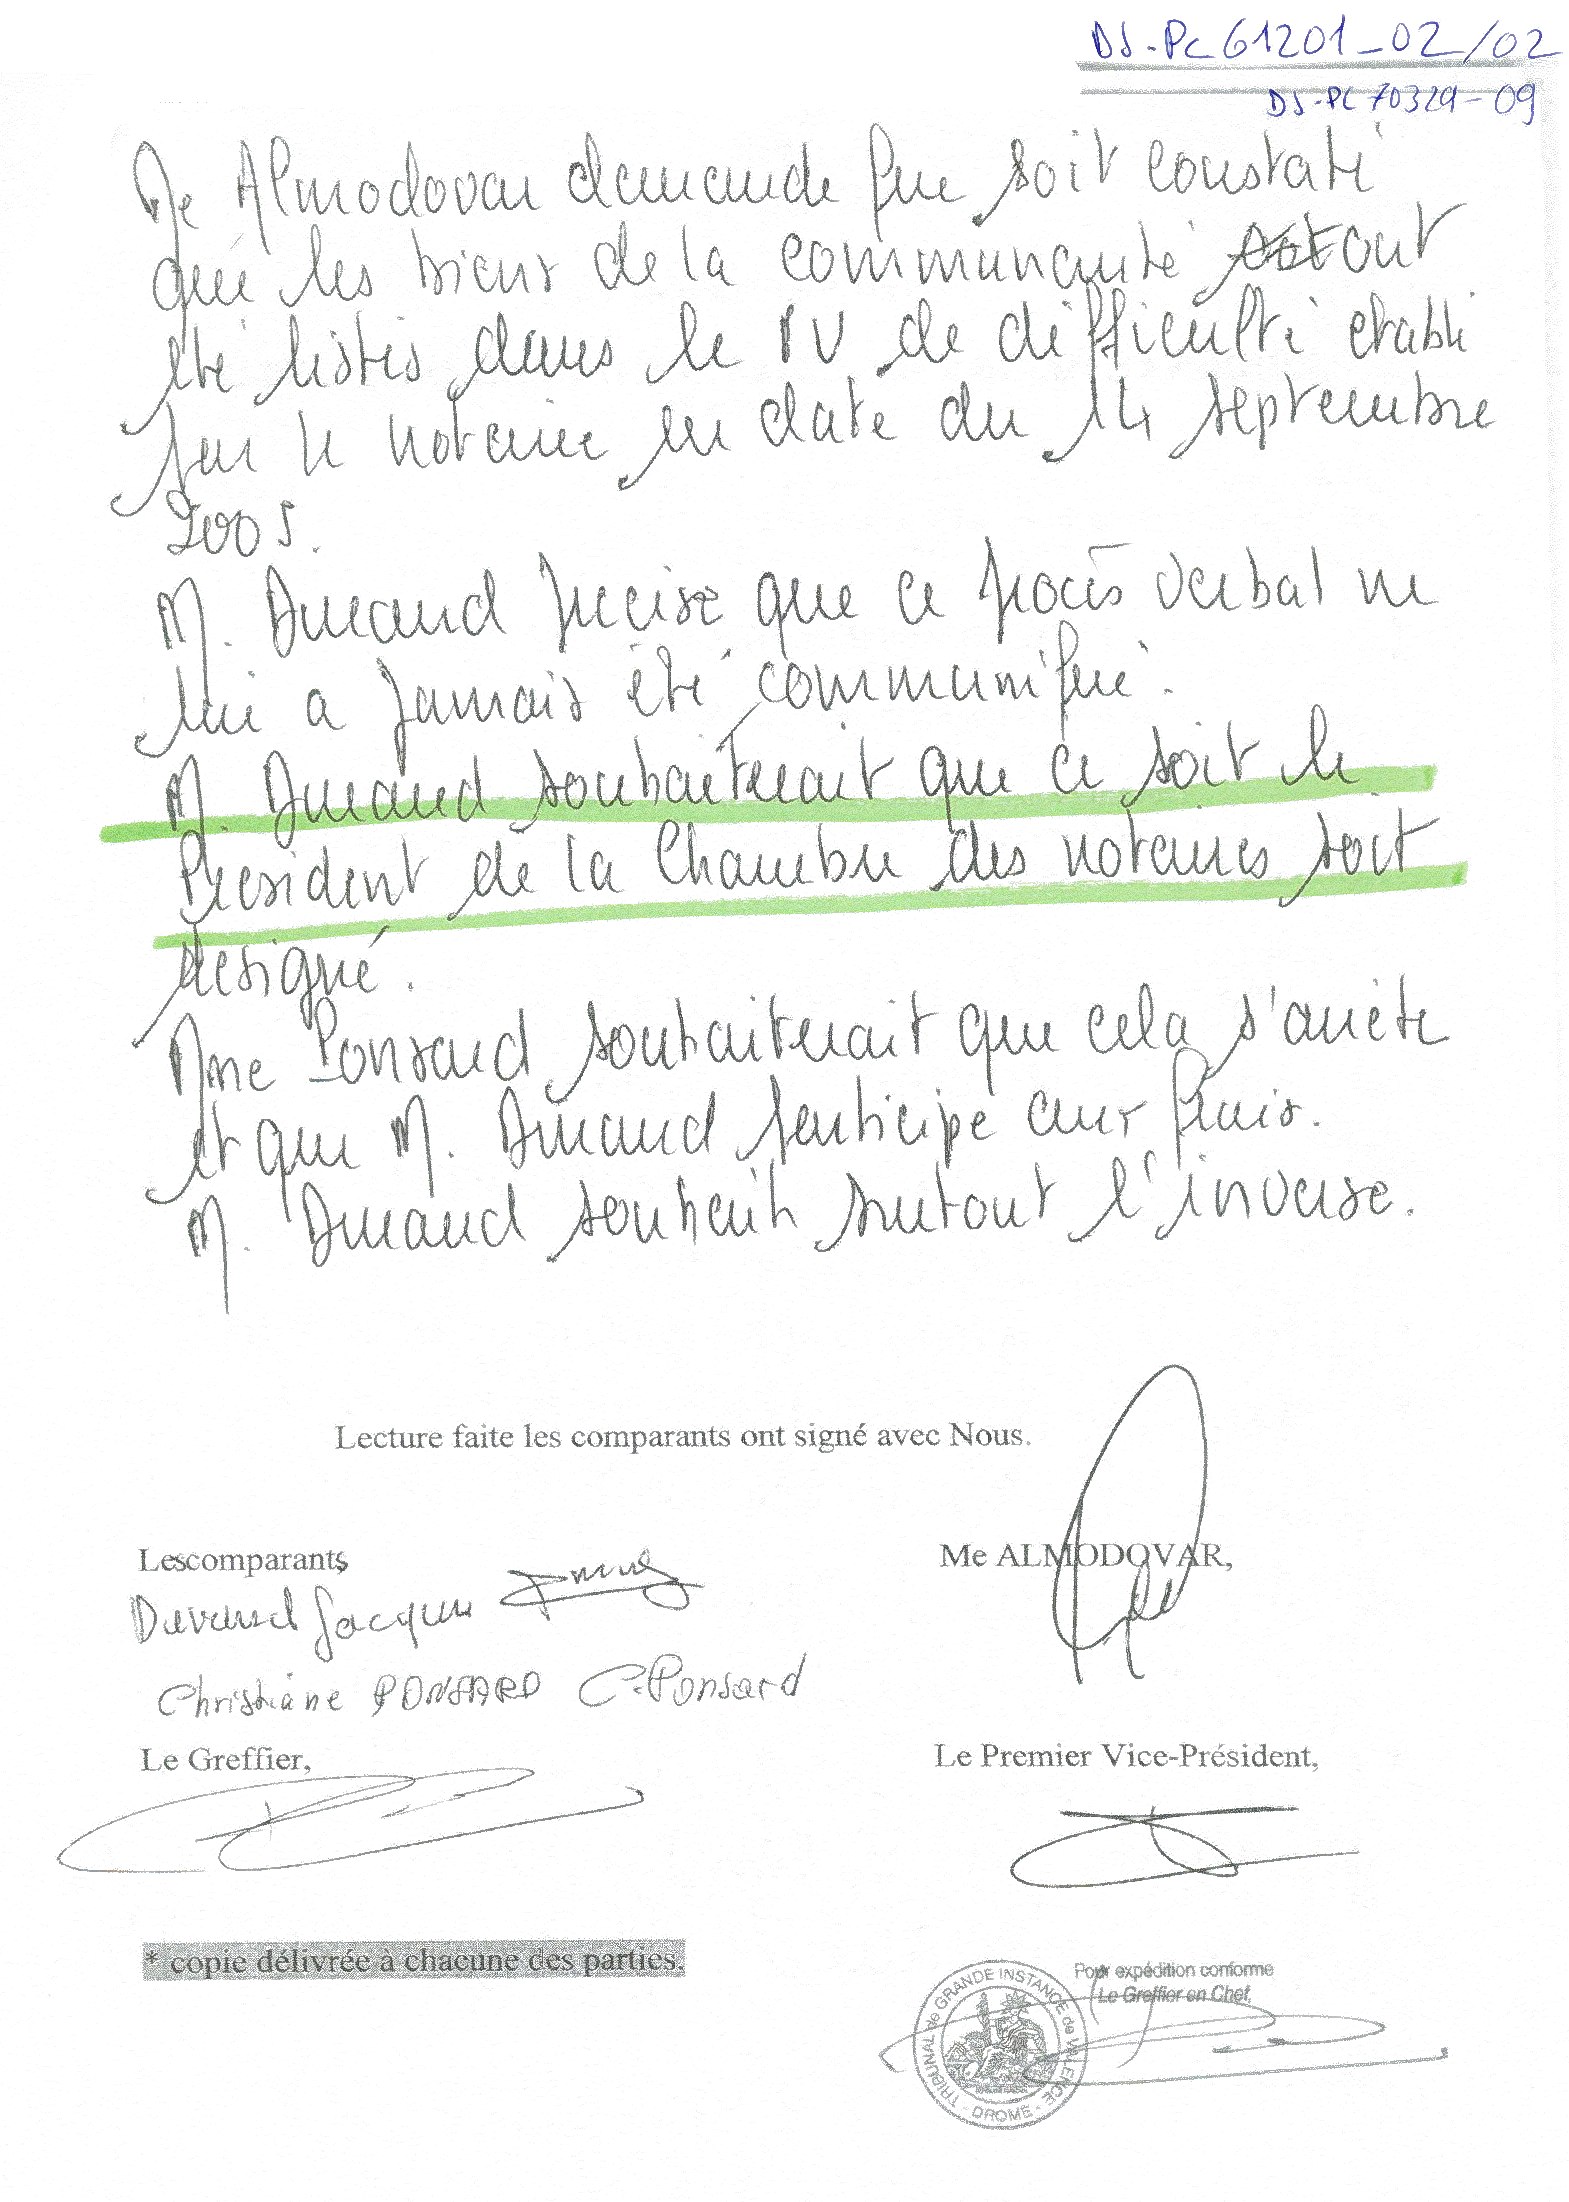 DJ-PC 61201-02/02
DJ-PC 70329-09
Me Almodovar demande que soit constaté
que les biens de la communauté soit ont
été listés dans le PV de difficulté établi
par le notaire en date du 14 septembre
2005.
M. Durand precise que ce procès verbal ne
lui a jamais été communiqué.
M. Durand souhaiterait que ce soit le
President de la Chambre des notaires soit
designé.
Mme Ponsard souhaiterait que cela s'arrête
et que M. Durand participe aux frais.
M. Durand souhaite surtout l'inverse.
Lecture faite les comparants ont signé avec Nous.
Lescomparants, Me ALMODOVAR,
Durand Jacques
Christiane PONSARD C.Ponsard
Le Greffier, Le Premier Vice-Président,
* copie délivrée à chacune des parties.
Pour expédition conforme
Le Greffier en Chef,
TRIBUNAL de GRANDE INSTANCE de VALENCE
- DROME -